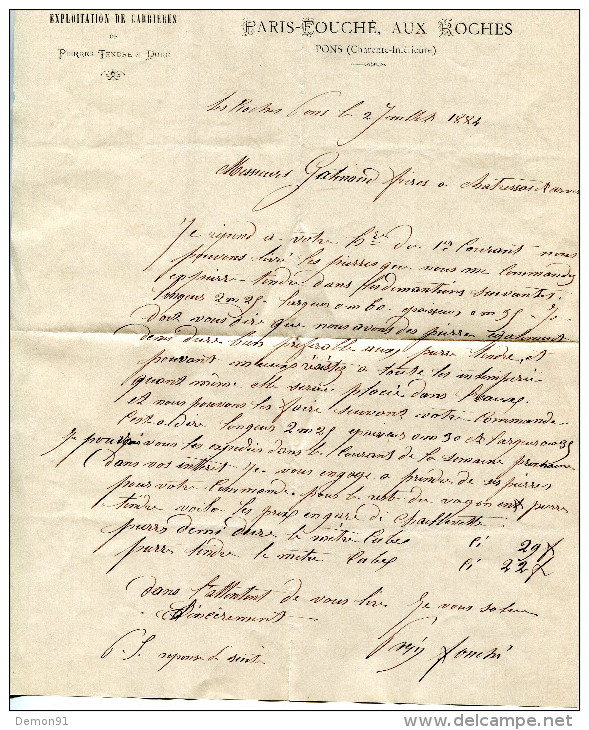 EXPLOITATION DE CARRIÈRES
DE
PIERRES TENDRE & DURE
PARIS-FOUCHÉ, AUX ROCHES
PONS (Charente-Inférieure)
les Roches Pons le 2 Juillet 1884
Messieurs frères a
Je repond a votre h^re du 1er Courant nous
pouvons livré les pierres que nous me Commandes
en pierre tendre dans les dimantions suivantes.
longeur 2 m 25 largeur 0 m 60 epeseur 0 m 35 Je
doit vous dire que nous avons des pierre Egalment
demi dure bien preferable aux pierre tendre, et
pouvant mieux résisté a toute les intemperie
quant même elle serai placée dans
et nous pouvons les faire suivant votre Commande
C'est a dire longeur 2 m 25 epeseur 0 m 30 et largeur 0 m 35
Je pourrai vous les expedier dans le Courant de la semaine prochaine
dans vos intérêt Je vous engage a prendre de ses pierres
pour votre Commande pour le reste du vagon en pierre
tendre voila les prix en gare de
pierre demi dure le mètre Cubes 29f
pierre tendre le mètre Cubes 22f
dans l'attentent de vous lire Je vous salue
Sincerement
Paris fouché
P. S. reponse de suite
Demon91
www.delcampe.net